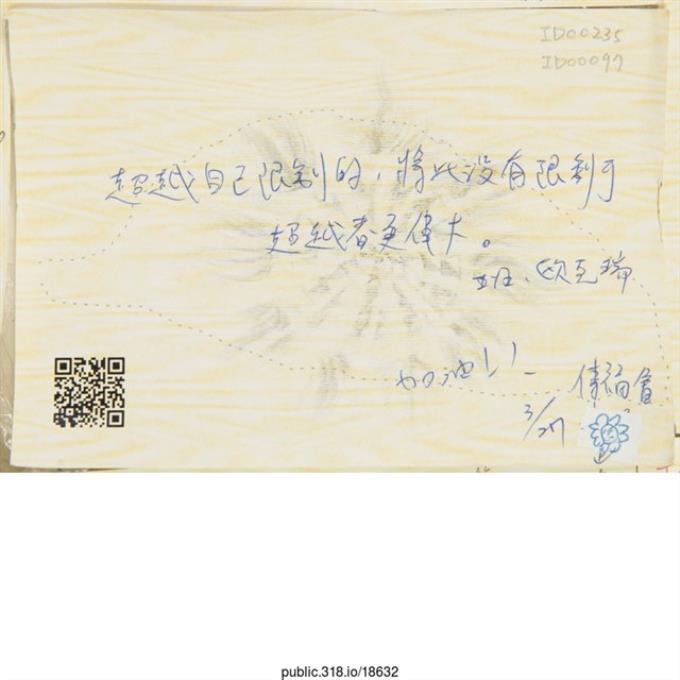 ID00235
ID00097
超越自己限制的，將比沒有限制可
超越者更偉大。
班．歐克瑞
加油!!
3/27
public.318.io/18632